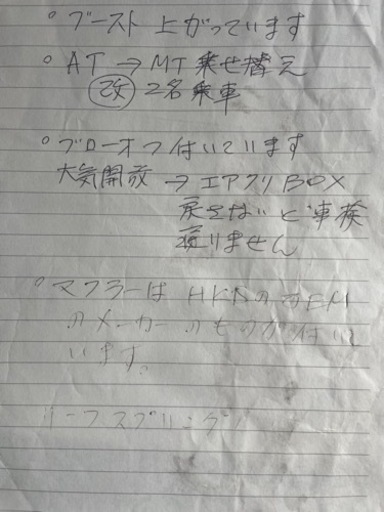 ° ブースト 上がっています
° AT → MT 乗せ替え
改 2名乗車
° ブローオフ付いています
大気開放 → エアクリBOX
戻さないと車検
通りません
° マフラーは HKSのOEM
のメーカーのものが付いて
います。
リーフスプリング